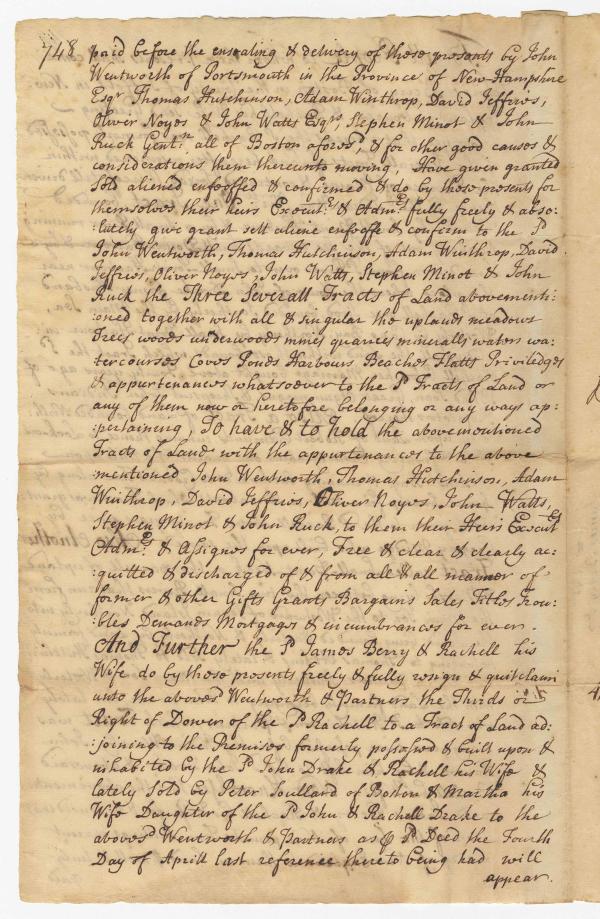 748 paid before the ensealing & delivery of these presents by John
Wentworth of Portsmouth in the Province of New-Hampshire
Esqr Thomas Hutchinson, Adam Winthrop, David Jeffries,
Oliver Noyes & John Watts Esqrs, Stephen Minot & John
Ruck Gentn. all of Boston aforesd, & for other good causes &
considerations them thereunto moving, Have given granted
Sold aliened enfeoffed & confirmed & do by these presents for
themselves their heirs Executrs & Admrs fully freely & abso:
:lutely give grant sell aliene enfeoffe & confirm to the sd
John Wentworth, Thomas Hutchinson, Adam Winthrop, David
Jeffries, Oliver Noyes, John Watts, Stephen Minot & John
Ruck the Three Severall Tracts of Land abovementi:
:oned together with all & singular the uplands meadows
Trees woods underwoods mines quarries mineralls waters wa:
:tercourses Coves Ponds Harbours Beaches Flatts Priviledges
& appurtenances whatsoever to the sd Tracts of Land or
any of them now or heretofore belonging or any ways ap:
:pertaining, To have & to hold the abovementioned
Tracts of Land with the appurtenances to the above
mentioned John Wentworth, Thomas Hutchinson, Adam
Winthrop, David Jeffries, Oliver Noyes, John Watts,
Stephen Minot & John Ruck, to them their Heirs Executrs
Admrs & Assignes for ever, Free & clear & clearly ac:
:quitted & discharged of & from all & all manner of
former & other Gifts Grants Bargains Sales Titles Trou:
:bles Demands Mortgages & incumbrances for ever.
And Further the sd James Berry & Rachell his
Wife do by these presents freely & fully resign & quitclaim
unto the abovesd Wentworth & Partners the Thirds or
Right of Dower of the sd Rachell to a Tract of Land ad:
:joining to the Premises formerly possessed & built upon &
inhabited by the sd John Drake & Rachell his Wife &
lately Sold by Peter Soullard of Boston & Martha his
Wife Daughter of the sd John & Rachell Drake to the
abovesd Wentworth & Partners as p sd Deed the Fourth
Day of Aprill last reference thereto being had will
appear.